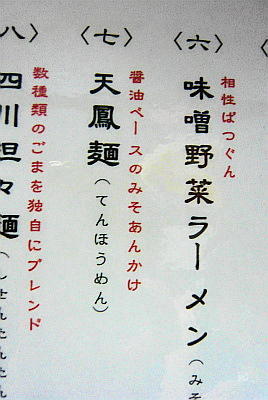 〈六〉
相性ばつぐん
味噌野菜ラーメン(みそ
〈七〉
醤油ベースのみそあんかけ
天鳳麺(てんほうめん)
八〉
数種類のごまを独自にブレンド
四川担々麺(しせんたんたん